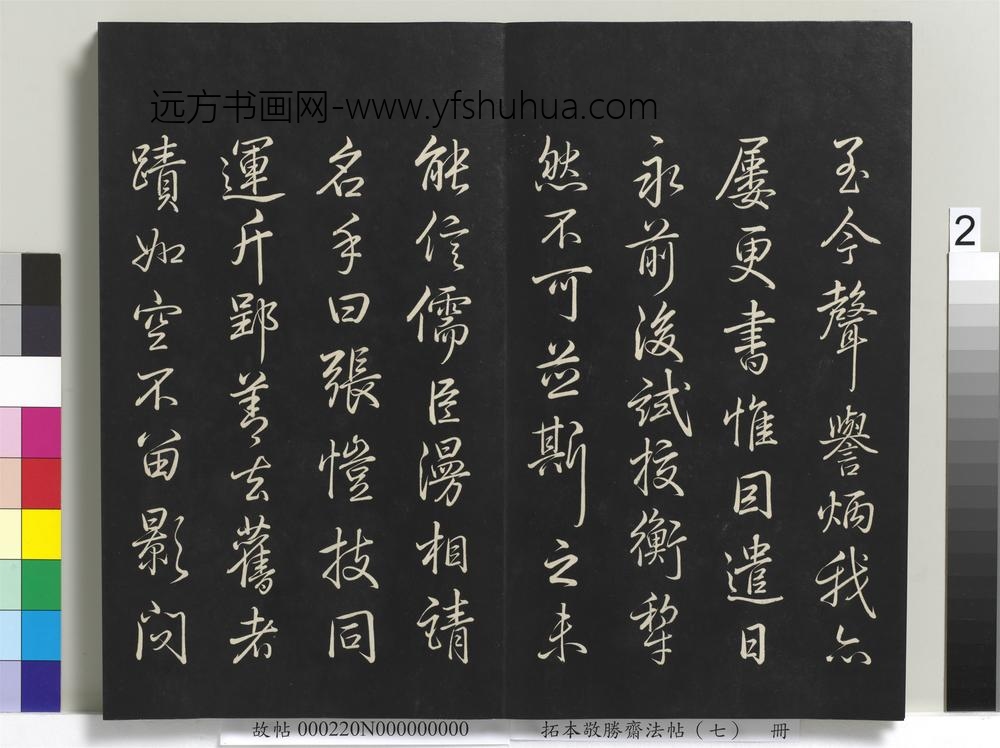 远方书画网-www.yfshuhua.com
至今聲譽炳我亦
屢更書惟因遣日
永前後試挍衡犂
然不可並斯之未
能信儒臣漫相請
名手曰張愷技同
運斤郢善去舊者
蹟如空不留影問
2
故帖 000220N000000000
拓本敬勝齋法帖（七） 冊